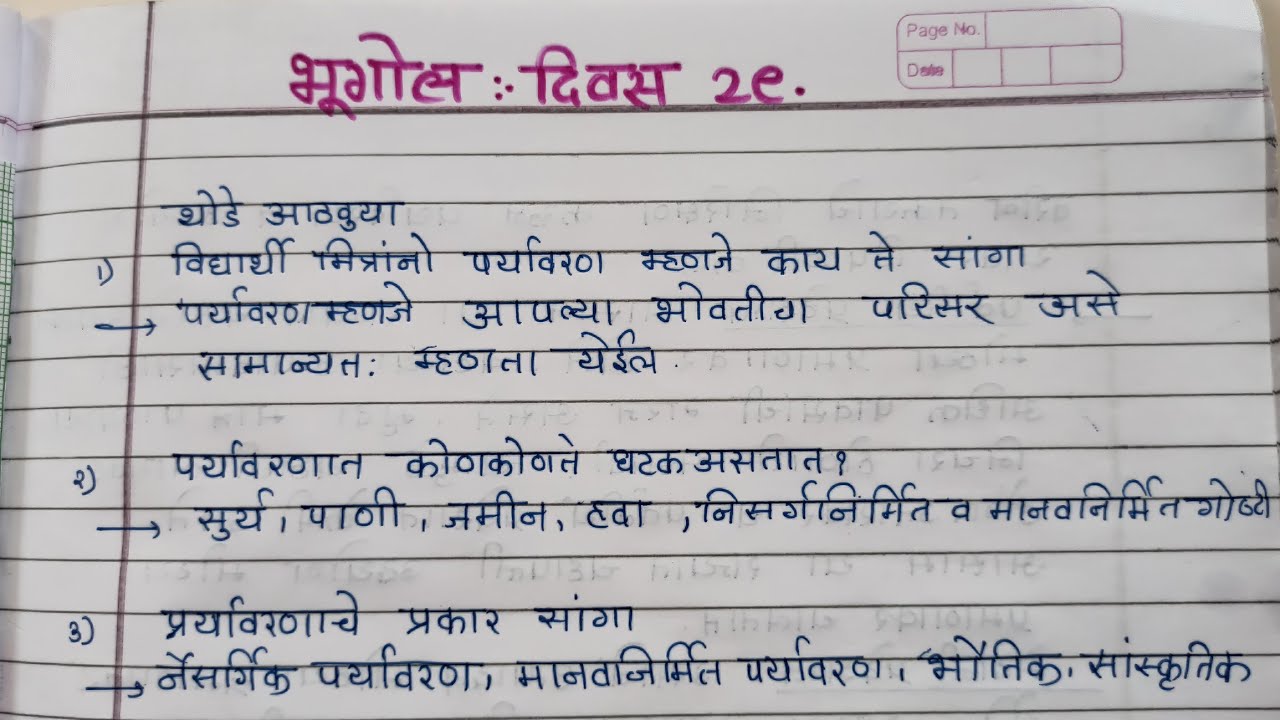 Page No.
Date
भूगोल :- दिवस २९.
थोडे आठवुया
१) विद्यार्थी मित्रांनो पर्यावरण म्हणजे काय ते सांगा
→ पर्यावरण म्हणजे आपल्या भोवतीचा परिसर असे
सामान्यत: म्हणता येईल.
२) पर्यावरणात कोणकोणते घटक असतात?
→ सुर्य, पाणी, जमीन, हवा, निसर्गनिर्मित व मानवनिर्मित गोष्टी
३) प्रर्यावरणाचे प्रकार सांगा
→ नैसर्गिक पर्यावरण, मानवनिर्मित पर्यावरण, भौतिक, सांस्कृतिक